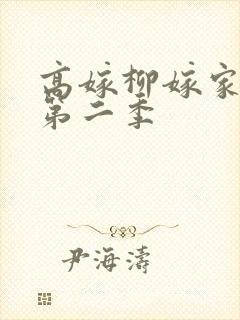 高嫁柳嫁家
第二季
尹海濤